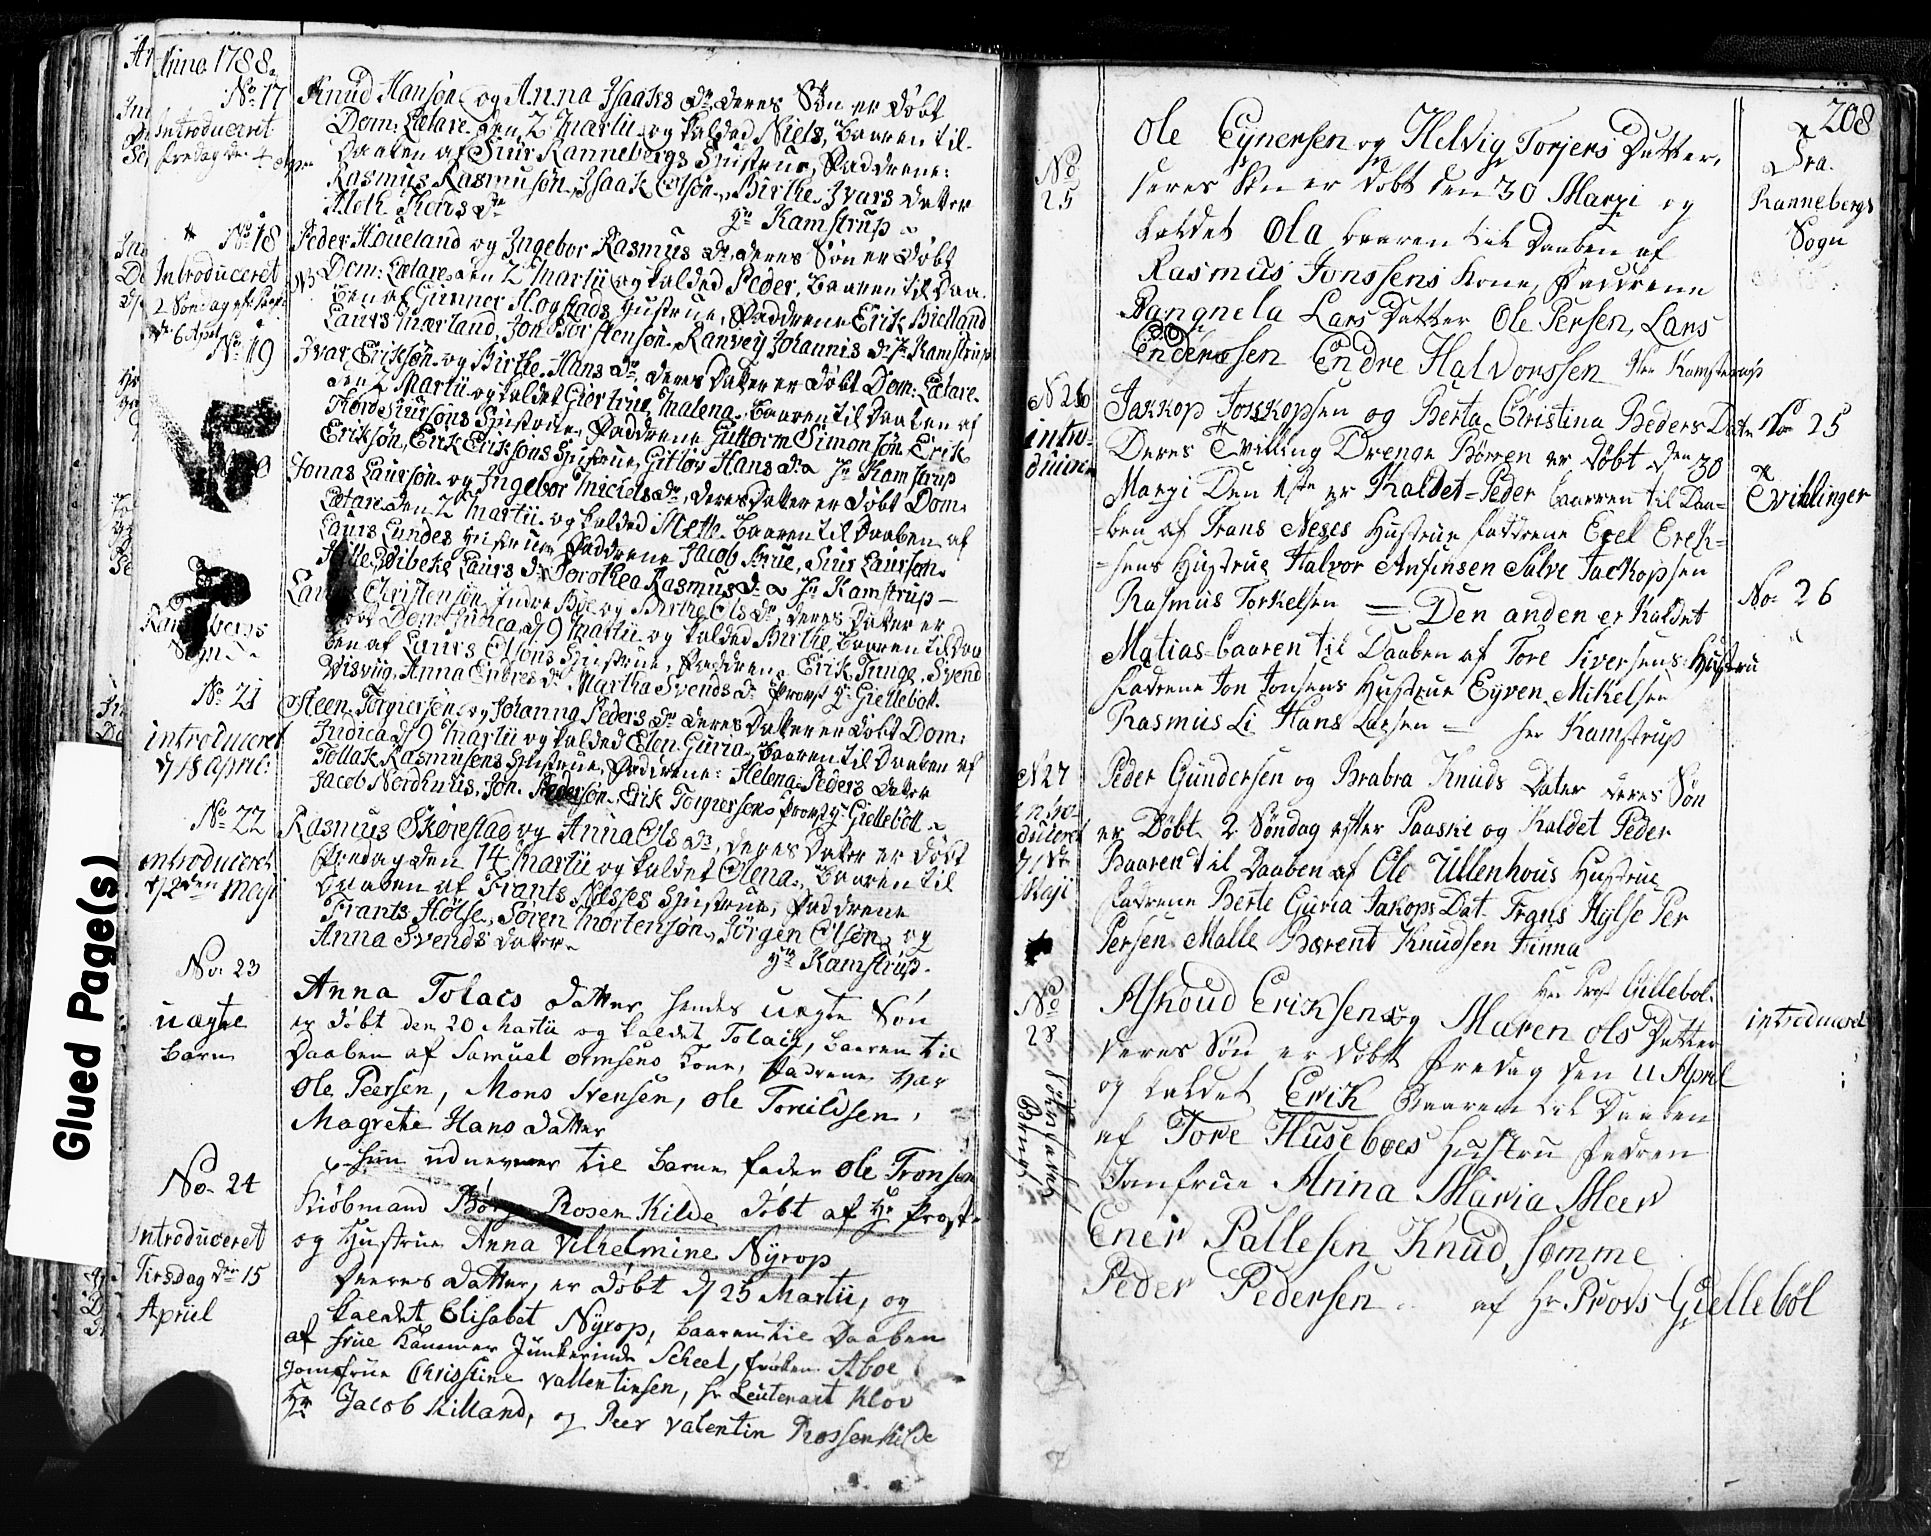 Anno 1788
No 17
Introduceret
fredag den 4
Knud Hansøn og Anna Isaaks dr, deres Søn er døbt
Dom: Lætare den 2 Martii og kalded Niels, baaren til
Daaben af Siur Rannebergs Hustrue, Faddrene:
Rasmus Rasmusøn, Isaak Olsøn, Birthe Ivars Datter
hr Kamstrup
No 18
Introduceret
Peder Houeland og Ingebor Rasmus dr, deres Søn er døbt
Dom: Lætare den 2 Martii og kalded Peder, baaren til Daa-
ben af Gunner Hognstads Hustrue, Faddrene Erik Bielland
Laurs Mærland, Jon Torstensøn, Ranvey Johannis dr Kamstrup
No 19
Ivar Eriksøn og Birthe Hans dr, deres Datter er døbt Dom: Lætare
den 2 Martii og kaldet Giertrue Malena, baaren til Daaben af
Tiord Siursøns Hustrue, Faddrene Guttorm Simonsøn, Erik
Eriksøn, Erik Eriksøns Hustrue, Gitlov Hans dr hr Kamstrup
Jonas Laursøn og Ingebor Michels dr, deres Datter er døbt Dom:
Lætare den 2 Martii og kalded Mette, baaren til Daaben af
Laurs Lundes Hustrue, Faddrene Jacob Brue, Siur Laursøn
Vibeke Laurs dr Dorothea Rasmus dr hr Kamstrup
Christensøn Indre Bøe og Birthe Ols dr, deres Datter er
døbt Dom: Judica d 9 Martii og kalded Birthe, baaren til Daa
ben af Laurs Olsøns Hustrue, Faddrene Erik Tunge, Svend
Visviig, Anna Endres dr Martha Svends dr Provst hr Giellebøll
No 21
introduceret
d 18 april:
Steen Torgiersøn og Johanna Peders dr deres Datter er døbt Dom:
Judica d 9 Martii og kalded Elen Guria, baaren til Daaben af
Tollak Rasmusens Hustrue, Faddrene: Helena Peders Datter
Jacob Nordhuus, Jon Pedersøn, Erik Torgiersøns Provst hr Giellebøll
No 22
introduceret
d 2den Maji
Rasmus Skoiestad og Anna Ols dr, deres Datter er døbt
Fredag den 14 Martii og kaldet Olena, baaren til
Daaben af Frants Neses Hustrue, Faddrene
Frants Hølse, Søren Mortensøn, Jørgen Olsøn, og
Anna Svends Datter
hr Kamstrup
No 23
uægte
barn
Anna Tolacs datter hendes uegte Søn
er døbt den 20 Martii og kaldet Tolach, baaren til
Daaben af Samuel Ormsens Kone, fadrene var
Ole Peersen, Mons Svensen, Ole Torrildsen,
Magrete Hans datter
hun udnevner til barne fader Ole Tronsen
No 24
Introduceret
Tirsdag den 15
Apriil
Kiöbmand Börge Rosen Kilde döbt af Hr Prost
og Hustrue Anna Vilhelmine Nÿrop
deeres datter, er døbt d 25 Martii, og
kaldet Elisabet Nÿrop, baaren til Daaben
af frue Kammer Junkerinde Scheel, frøken Aboe
Jomfrue Christine Vallentinsen, hr Leutenant Klov
Hr Jacob Killand, og Peer Valentin Rossenkilde
208
No
25
Ole Eynersen og Helvig Torjers Datter,
deres Søn er døbt den 30 Marzi og
kaldet Ola baaren til Daaben af
Rasmus Jonssens Kone, faddrene
Rangnela Lars Datter Ole Persen, Lars
Enderssen Endre Halvorssen Her Kamstrup
fra
Rannebergs
Sogn
N 26
intro
duceret
Jakkop Jorskopsen og Berta Christina Peders Datr No 25
Deres Tvilling Drenge Børren er døbt den 30
Marzi Den 1ste er Kaldet Peder baarren til Daa-
ben af Frans Neses Hustrue fadrene Erek Erek-
sens Hustrue Halvor Ansinsen Salve Jackopsen
Rasmus Torkelsen = Den anden er Kaldet
Tvillinger
No 26
Matias baaren til Daaben af Tore Siversens Hustru
fadrene Jon Jonsens Hustrue Eyven Mikelsen
Rasmus Li Hans Larsen = her Kamstrup
N 27
intro
duceret
d 1ste
Maji
Peder Gundersen og Brabra Knuds Dater deres Søn
er Døbt 2 Søndag efter Paaske og Kaldet Peder
Baaren til Daaben af Ole Ullenhous Hustrue
fadrene Berte Guria Jakops Dat. Frans Hylse Per
Persen Malle Bærent Knudsen Finna
Her Prost Gillebol.
No
28
Askoud Eriksen og Maren Ols Datter
deres Søn er døbt fredag den 11 April
og kaldet Erik Baaren til Daaben
af Tore Huseboes Hustru fadren
Jomfrue Anna Maria Meer
Ener Pallesen Knud Somme
Peder Pedersen af Hr Provs Giellebøl
introduceret
Glued Page(s)